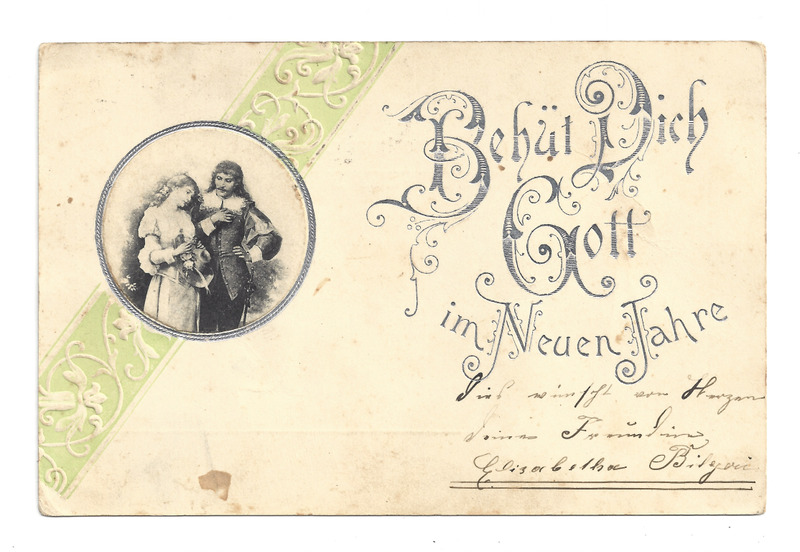 Behüt Dich
Gott
im Neuen Jahre
Dies wünscht von Herzen
deine Freundin
Elisabetha